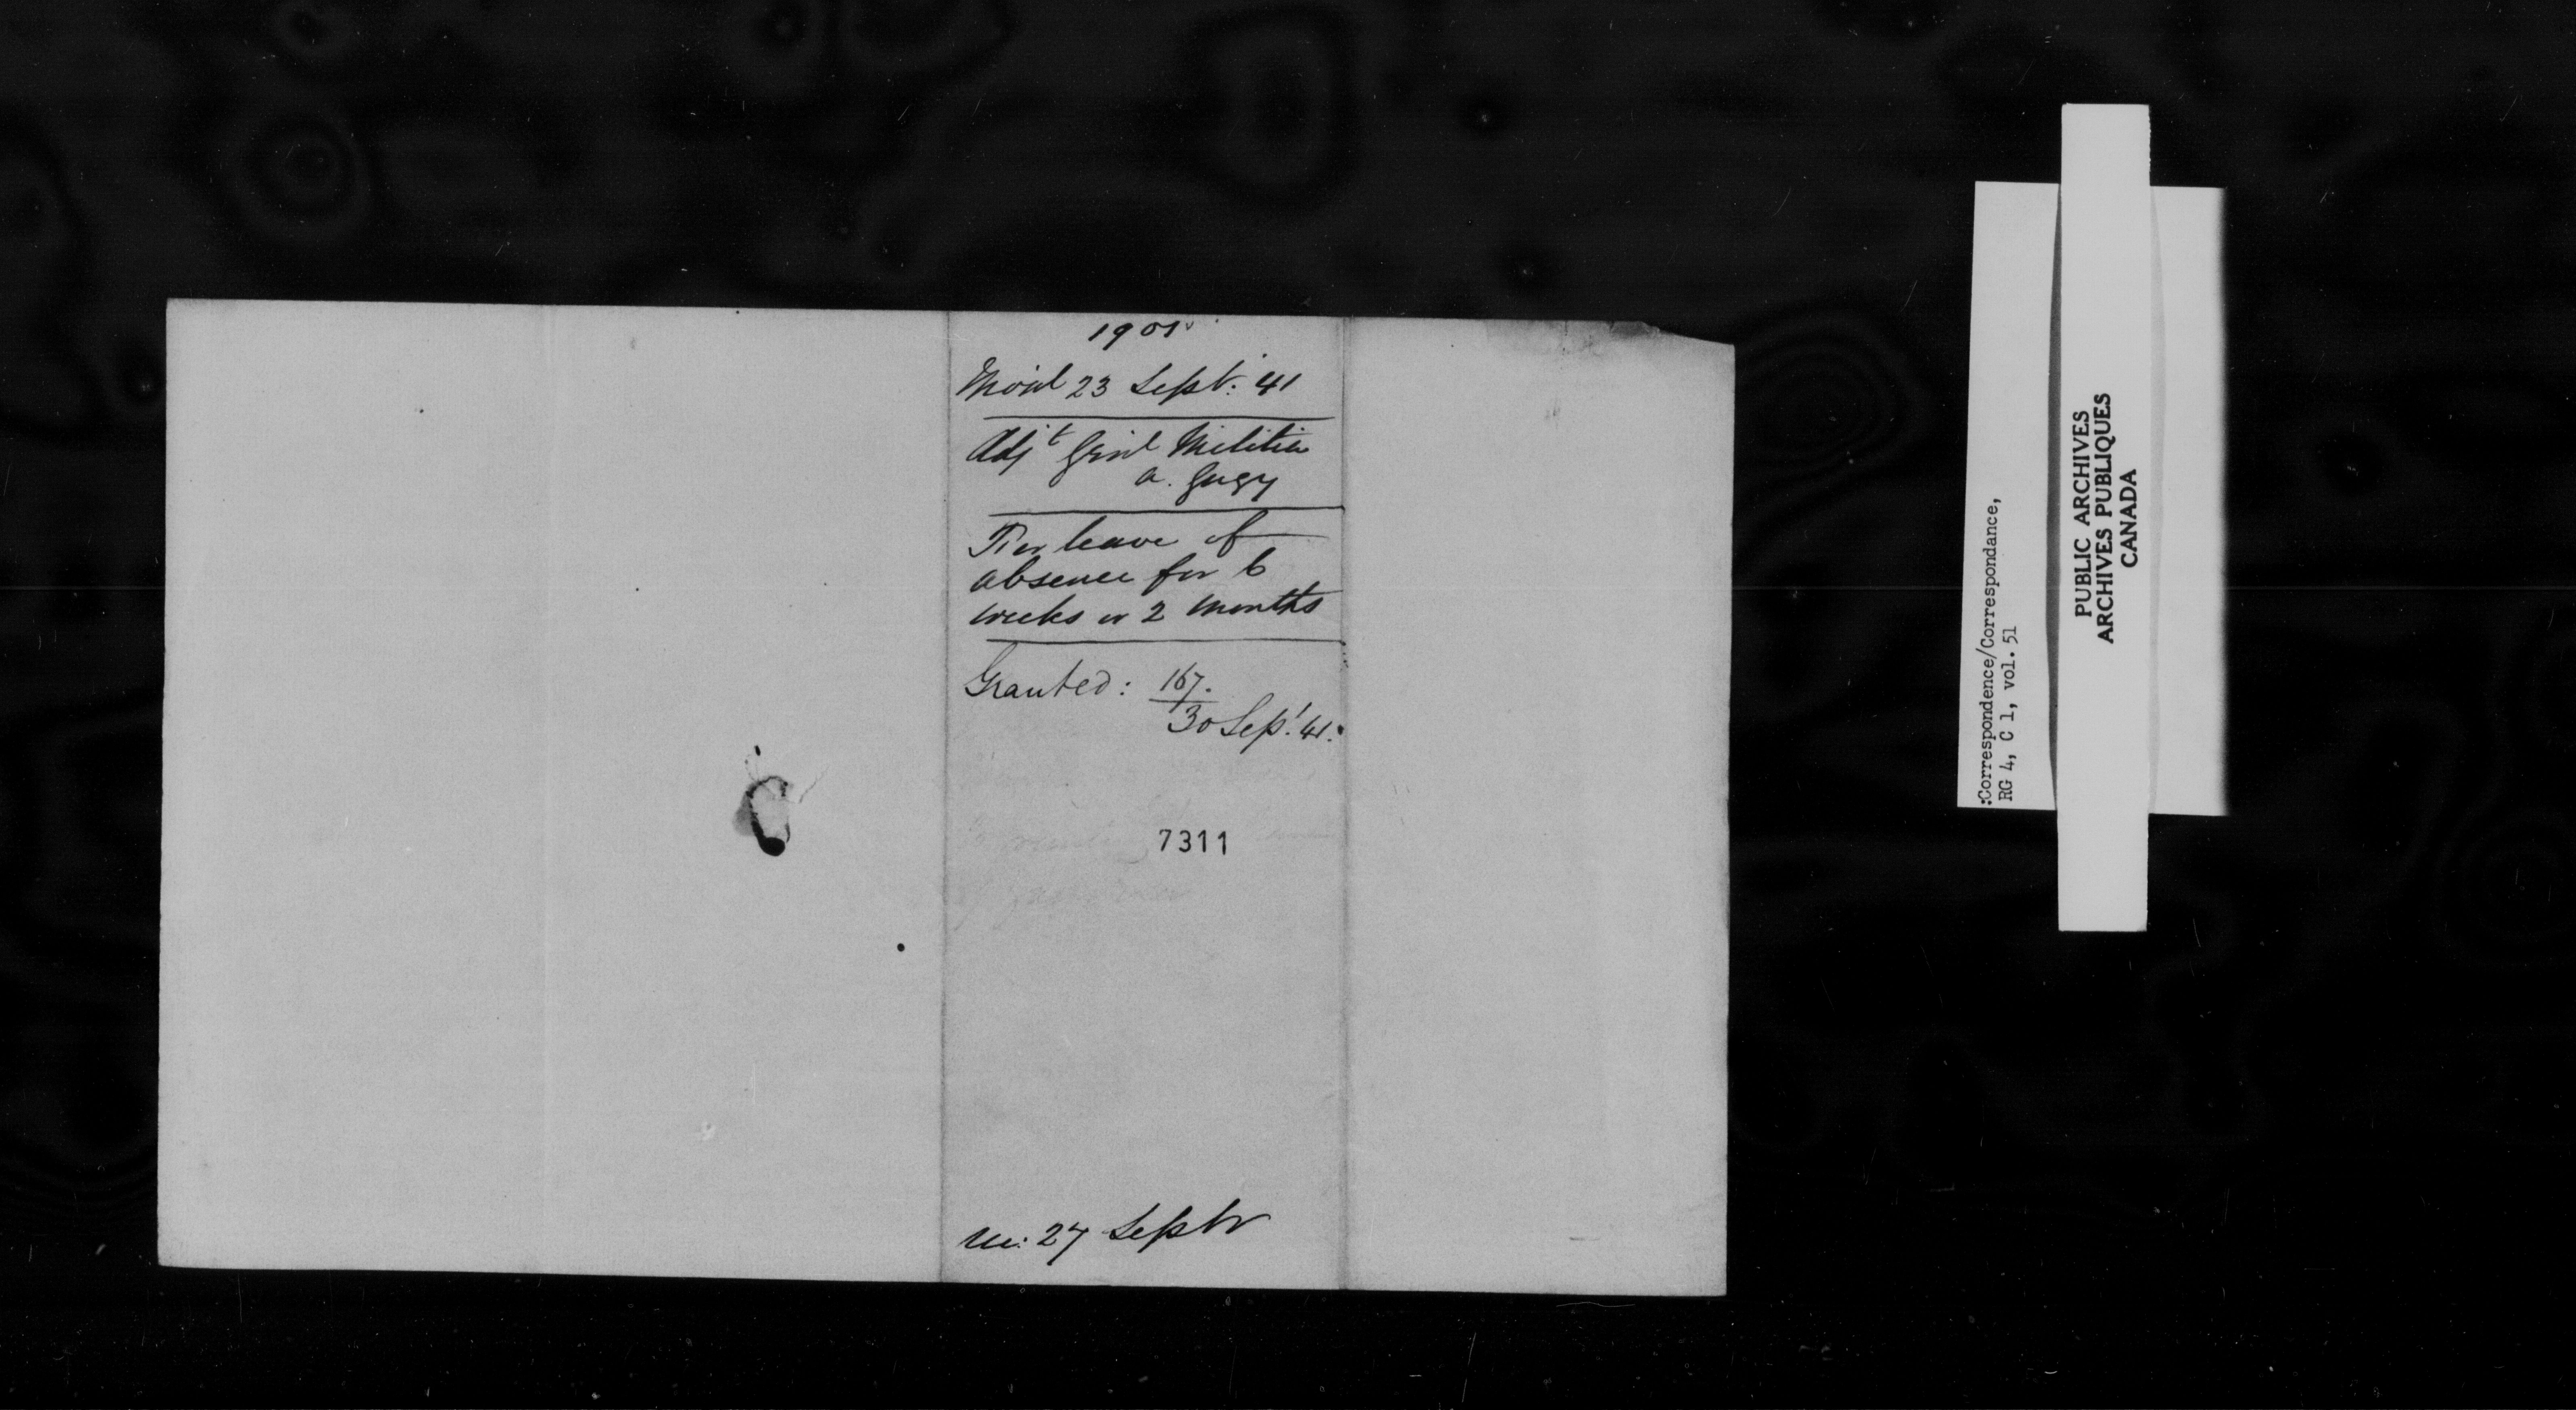 1901
Montl 23 Septr. 41
Adjt Genl Militia
A. Gugy
For leave of
absence for 6
weeks or 2 months
Granted: 167.
30 Sept. 41.
7311
27 Septr
:Correspondence/Correspondance,
RG 4, C 1, vol. 51
PUBLIC ARCHIVES
ARCHIVES PUBLIQUES
CANADA